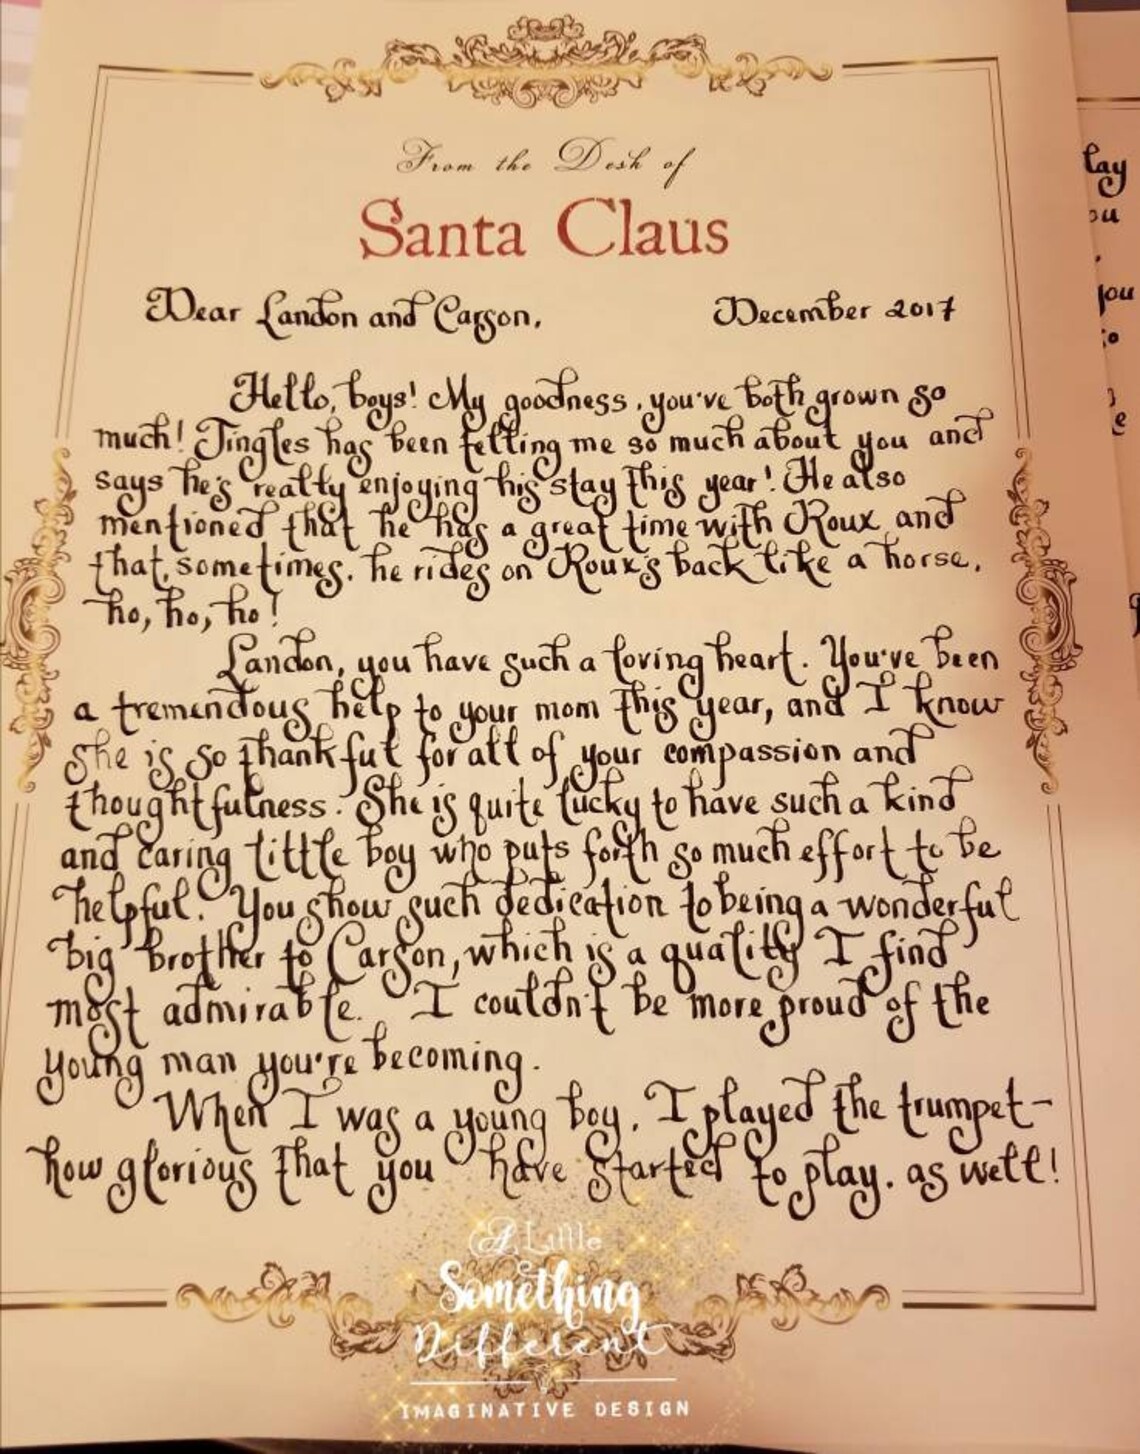 From the Desk of
Santa Claus
Dear Landon and Carson,
December 2017
Hello, boys! My goodness, you've both grown so
much! Jingles has been telling me so much about you and
says he's really enjoying his stay this year! He also
mentioned that he has a great time with Roux and
that, sometimes, he rides on Roux's back like a horse,
ho, ho, ho!
Landon, you have such a loving heart. You've been
a tremendous help to your mom this year, and I know
she is so thankful for all of your compassion and
thoughtfulness. She is quite lucky to have such a kind
and caring little boy who puts forth so much effort to be
helpful. You show such dedication to being a wonderful
big brother to Carson, which is a quality I find
most admirable. I couldn't be more proud of the
young man you're becoming.
When I was a young boy, I played the trumpet-
how glorious that you have started to play, as well!
A Little
Something
Different
IMAGINATIVE DESIGN